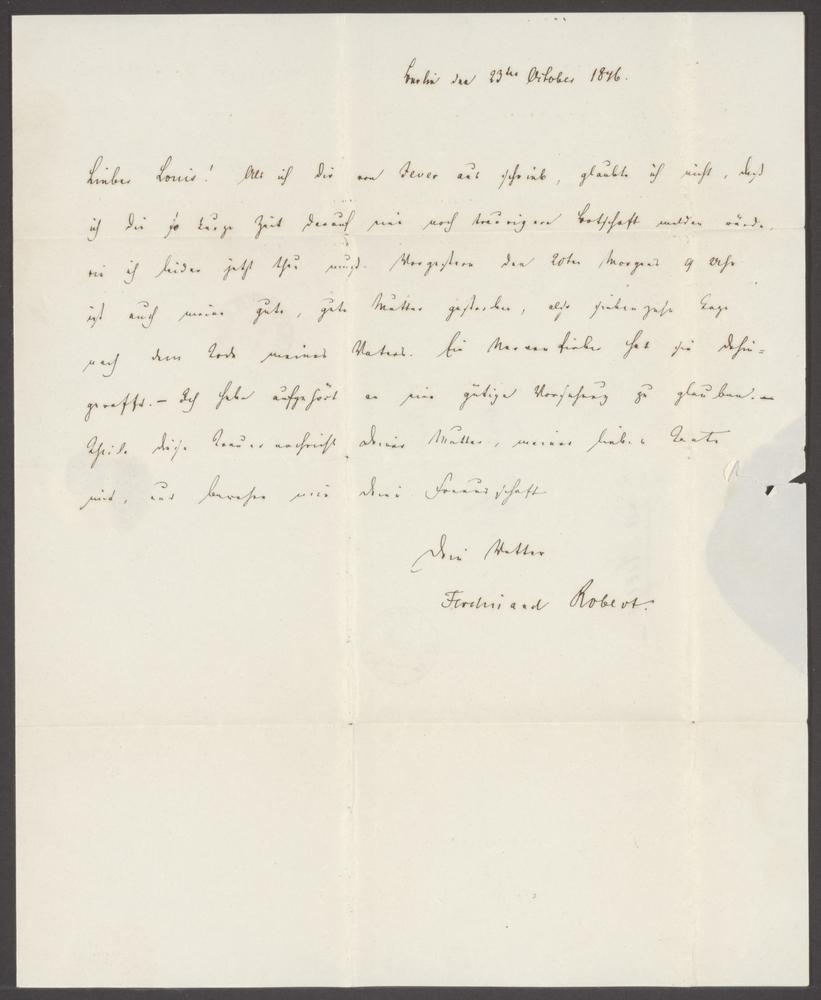 Berlin den 23ten October 1846.
Lieber Louis! Als ich Dir von Jever aus schrieb, glaubte ich nicht, daß
ich Dir so kurze Zeit darauf eine noch traurigere Botschaft melden würde,
wie ich leider jetzt thun muß. Vorgestern den 20ten Morgens 9 Uhr
ist auch meine gute, gute Mutter gestorben, also siebenzehn Tage
nach dem Tode meines Vaters. Ein Nervenfieber hat sie dahin=
gerafft. – Ich habe aufgehört an eine gütige Vorsehung zu glauben. –
Theile diese Trauernachricht Deiner Mutter, meiner lieben Tante
mit, und bewahre mir Deine Freundschaft
Dein Vetter
Ferdinand Robert.